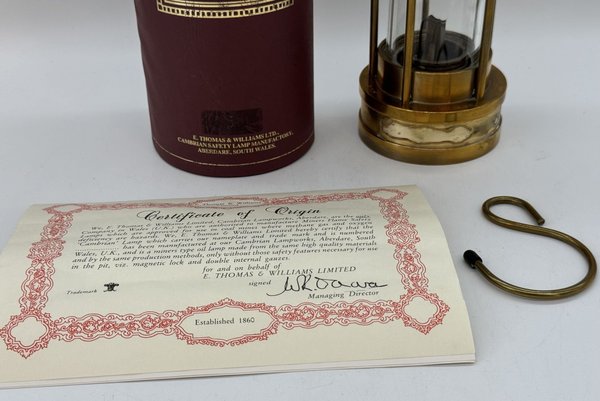 E. THOMAS & WILLIAMS LTD.,
CAMBRIAN SAFETY LAMP MANUFACTORY,
ABERDARE, SOUTH WALES.
Certificate of Origin
We, E. Thomas & Williams Limited, Cambrian Lampworks, Aberdare, are the only
Company in Wales (U.K.) who are engaged in manufacture Miners Flame Safety
Lamps which are approved for use in coal mines where methane gas and oxygen
deficiency are hazards. We, E. Thomas & Williams Limited hereby certify that the
'Cambrian' Lamp which carries our name plate and trade mark and is numbered
has been manufactured at our Cambrian Lampworks, Aberdare, South
Wales, U.K., and a miners lamp made from the same high quality materials
and by the same production methods, only without those features necessary for use
in the pit, viz. magnetic lock and double internal gauzes.
for and on behalf of
E. THOMAS & WILLIAMS LIMITED
signed
Managing Director
Trademark
Established 1860